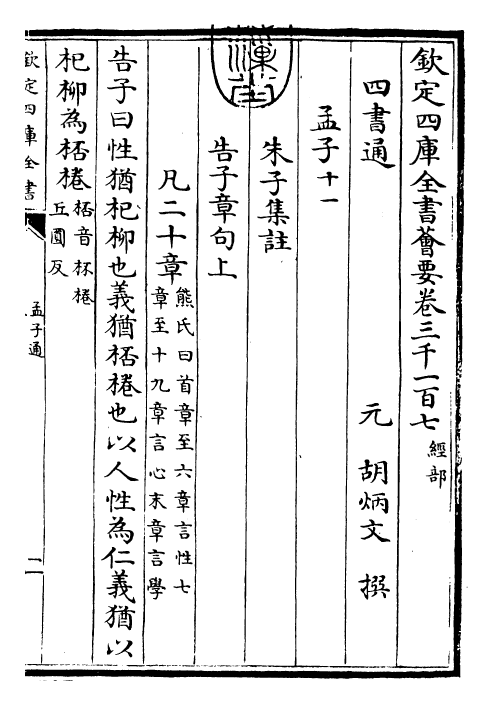 欽定四庫全書薈要卷三千一百七經部
四書通　元　胡炳文　撰
孟子十一
朱子集註
告子章句上
凡二十章熊氏曰首章至六章言性七
章至十九章言心末章言學
告子曰性猶杞柳也義猶桮棬也以人性為仁義猶以
杞柳為桮棬桮音杯棬
丘圓反
欽定四庫全書
孟子通